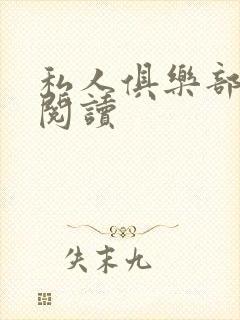 私人俱樂部
閱讀
失末九